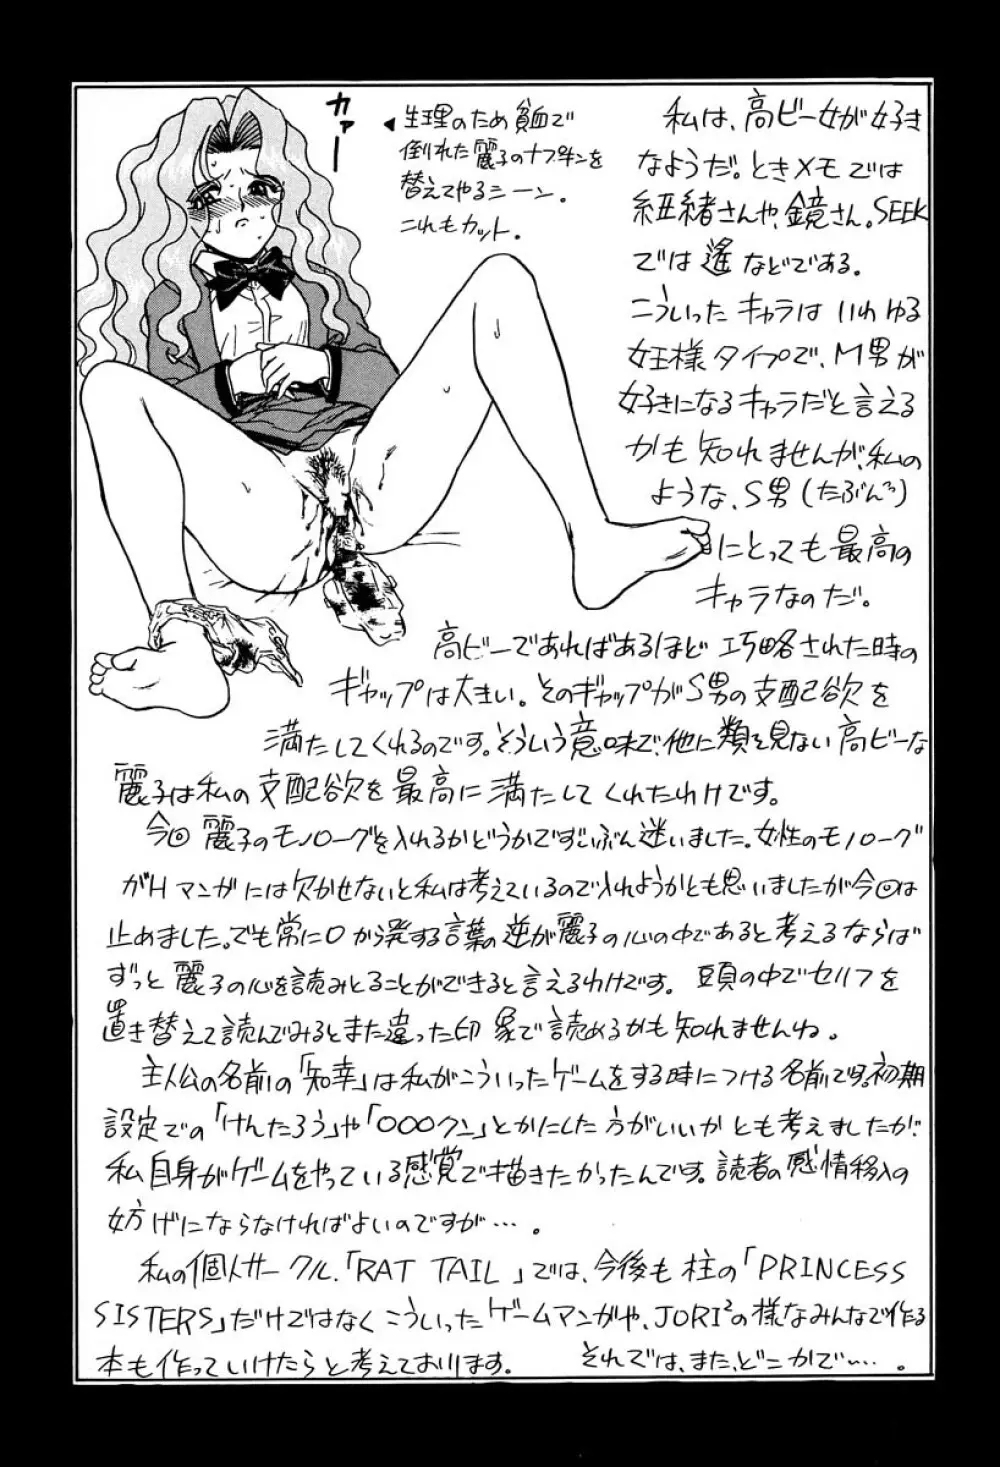 カァー
生理のため貧血で
倒れた麗子のナプキンを
替えてやるシーン。
これもカット。
私は、高ビー女が好き
なようだ。ときメモでは
紐緒さんや、鏡さん。SEEK
では遙などである。
こういったキャラはいわゆる
女王様タイプで、M男が
好きになるキャラだと言える
かも知れませんが、私の
ような、S男(たぶん)
にとっても最高の
キャラなのだ。
高ビーであればあるほど巧略された時の
ギャップは大きい。そのギャップがS男の支配欲を
満たしてくれるのです。そういう意味で、他に類を見ない高ビーな
麗子は私の支配欲を最高に満たしてくれたわけです。
今回麗子のモノローグを入れるかどうかでずいぶん迷いました。女性のモノローグ
がHマンガには欠かせないと私は考えているので入れようかとも思いましたが今回は
止めました。でも常に口から発する言葉の逆が麗子の心の中であると考えるならば
ずっと麗子の心を読みとることができると言えるわけです。頭の中でセリフを
置き替えて読んでみるとまた違った印象で読めるかも知れませんね。
主人公の名前の「知幸」は私がこういったゲームをする時につける名前です。初期
設定での「けんたろう」や「〇〇〇クン」とかにした方がいいかとも考えましたが
私自身がゲームをやっている感覚で描きたかったんです。読者の感情移入の
妨げにならなければよいのですが…。
私の個人サークル、「RAT TAIL」では、今後も柱の「PRINCESS
SISTERS」だけではなくこういったゲームマンガや、JORI²の様なみんなで作る
本も作っていけたらと考えております。 それでは、また、どこかで…。